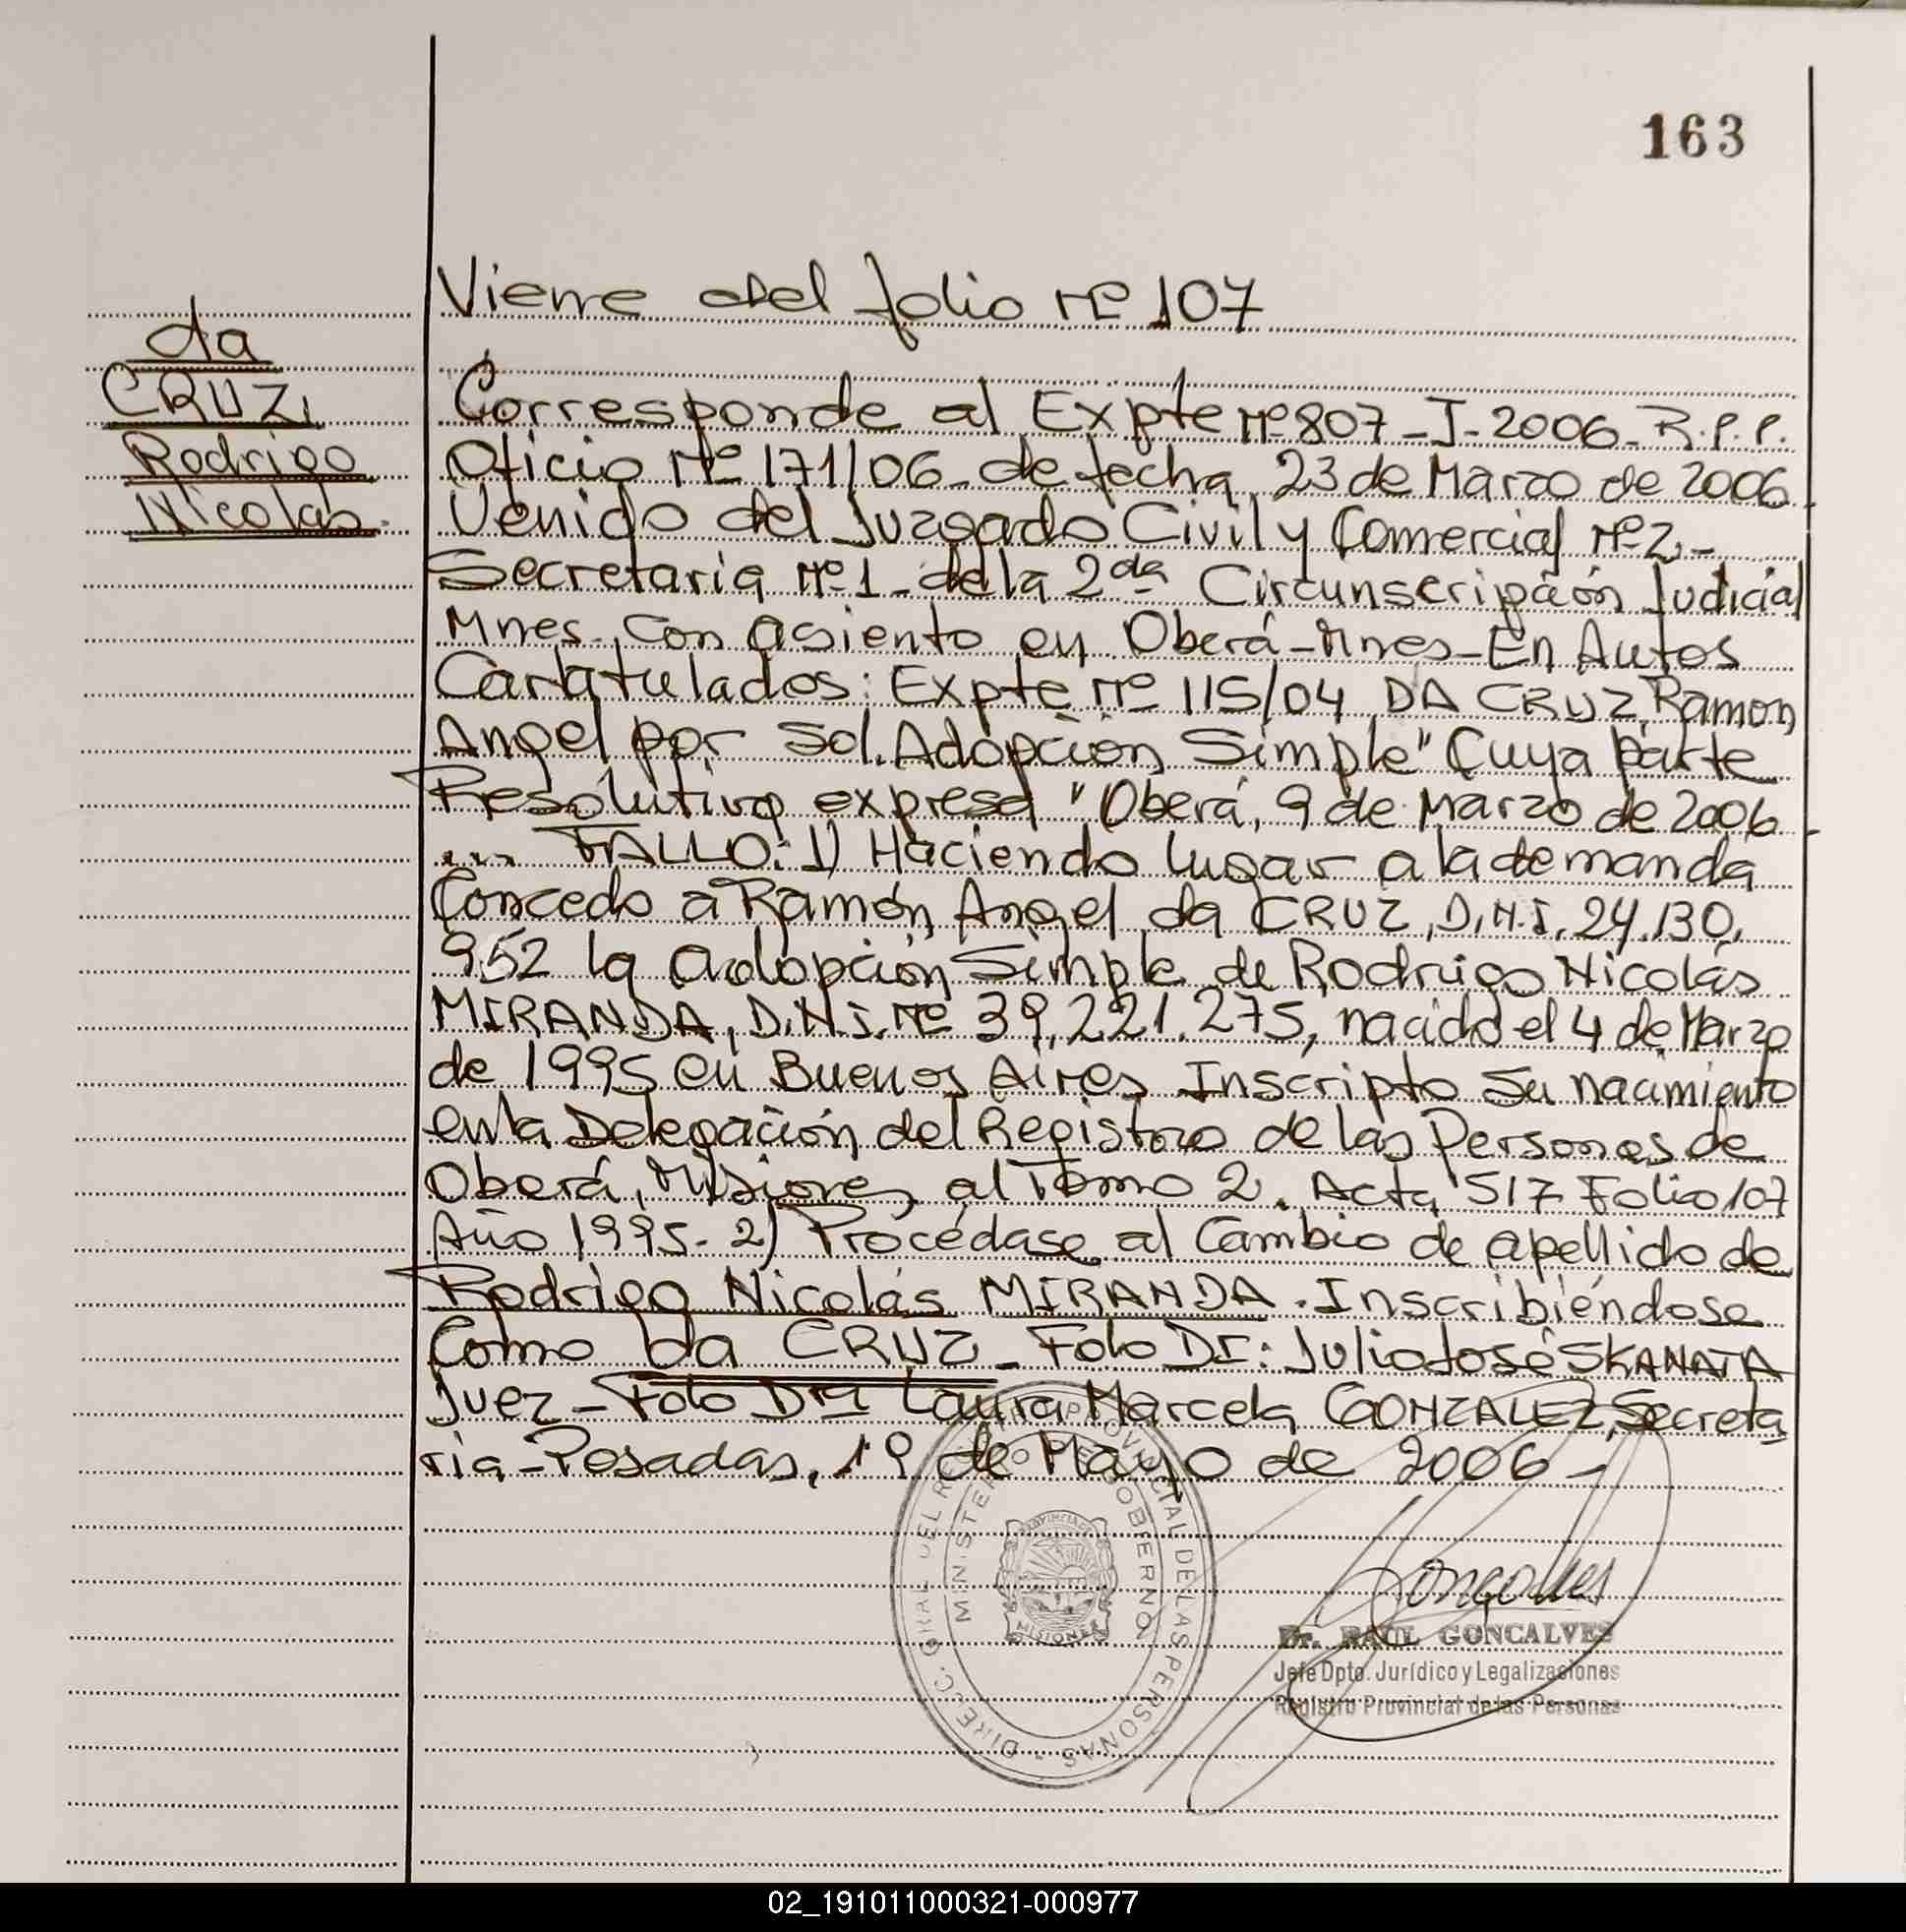 163
Viene del folio Nº 107
da
CRUZ,
Rodrigo
Nicolás.
Corresponde al Expte Nº 807-J-2006-R.P.P.
Oficio Nº 171/06- de fecha 23 de Marzo de 2006.
Venido del Juzgado Civil y Comercial Nº 2.-
Secretaria Nº 1- de la 2da Circunscripción Judicial
Mnes. Con asiento en Oberá-Mnes-En Autos
Caratulados: Expte Nº 115/04 DA CRUZ, Ramon
Angel por Sol. Adopción Simple" Cuya parte
Resolutiva expresa "Oberá, 9 de Marzo de 2006.
... FALLO: 1) Haciendo lugar a la demanda
Concedo a Ramón Angel da CRUZ, D.N.I. 24.130.
952 la adopción Simple de Rodrigo Nicolás
MIRANDA, D.N.I. Nº 39.221.275, nacido el 4 de Marzo
de 1995 en Buenos Aires Inscripto su nacimiento
en la Delegación del Registro de las Personas de
Oberá, Misiones, al Tomo 2. Acta 517 Folio 107
Año 1995- 2) Procédase al Cambio de apellido de
Rodrigo Nicolás MIRANDA. Inscribiéndose
Como da CRUZ- Fdo Dr: Julio José SKANATA
Juez- Fdo Dra Laura Marcela GONZALEZ, Secreta
ria-Posadas, 19 de Mayo de 2006-
DIRECC. GRAL DEL REG. PROVINCIAL DE LAS PERSONAS -
MINISTERIO DE GOBIERNO
PROVINCIA DE
MISIONES
Goncalves
Dr. RAUL GONCALVES
Jefe Dpto. Jurídico y Legalizaciones
Registro Provincial de las Personas
02_191011000321-000977